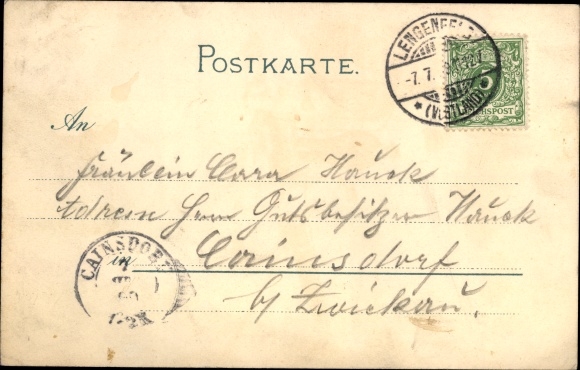 POSTKARTE.
LENGENFELD
-7.7.
* (VOGTLAND)
5
REICHSPOST
An
Fräulein Clara Hauck
Adressn Herrn Gutsbesitzer Hauck
in Cainsdorf
b/ Zwickau.
CAINSDORF